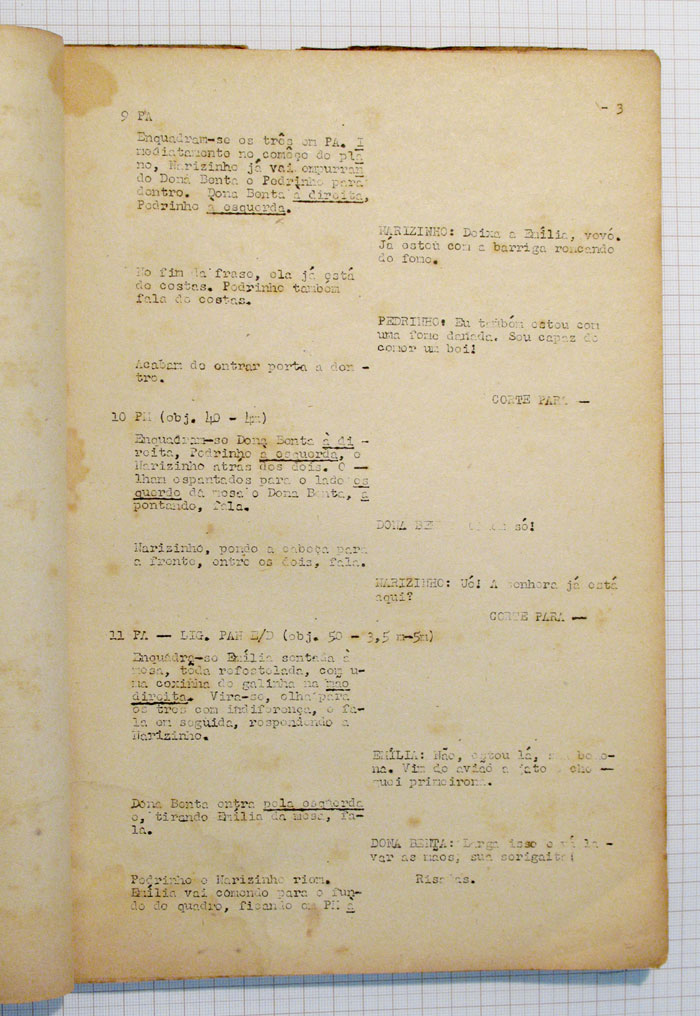 - 3
9 PA
Enquadram-se os três em PA. I
mediatamente no comêço do pla
no, Narizinho já vai empurran
do Dona Benta e Pedrinho para
dentro. Dona Benta à direita,
Pedrinho à esquerda.
NARIZINHO: Deixa a Emília, vovó.
Já estou com a barriga roncando
de fome.
No fim da frase, ela já está
de costas. Pedrinho também
fala de costas.
PEDRINHO: Eu também estou com
uma fome danada. Sou capaz de
comer um boi!
Acabam de entrar porta a den -
tro.
CORTE PARA —
10 PM (obj. 40 - 4m)
Enquadram-se Dona Benta à di -
reita, Pedrinho à esquerda, e
Narizinho atrás dos dois. O —
lham espantados para o lado es
querdo da mesa e Dona Benta, a
pontando, fala.
DONA só!
Narizinho, pondo a cabeça para
a frente, entre os dois, fala.
NARIZINHO: Ué! A senhora já está
aqui?
CORTE PARA —
11 PA — LIG. PAN E/D (obj. 50 - 3,5 m-5m)
Enquadra-se Emília sentada à
mesa, tôda refestelada, com u-
ma coxinha de galinha na mão
direita. Vira-se, olha para
os três com indiferença, e fa-
la em seguida, respondendo a
Narizinho.
EMÍLIA: Não, estou lá, sua bobo-
na. Vim de avião a jato e che —
guei primeirona.
Dona Benta entra pela esquerda
e, tirando Emília da mesa, fa-
la.
DONA BENTA: Larga isso e vá la -
var as mãos, sua serigaita!
Pedrinho e Narizinho riem.
Risadas.
Emília vai comendo para o fun-
do do quadro, ficando em PM à